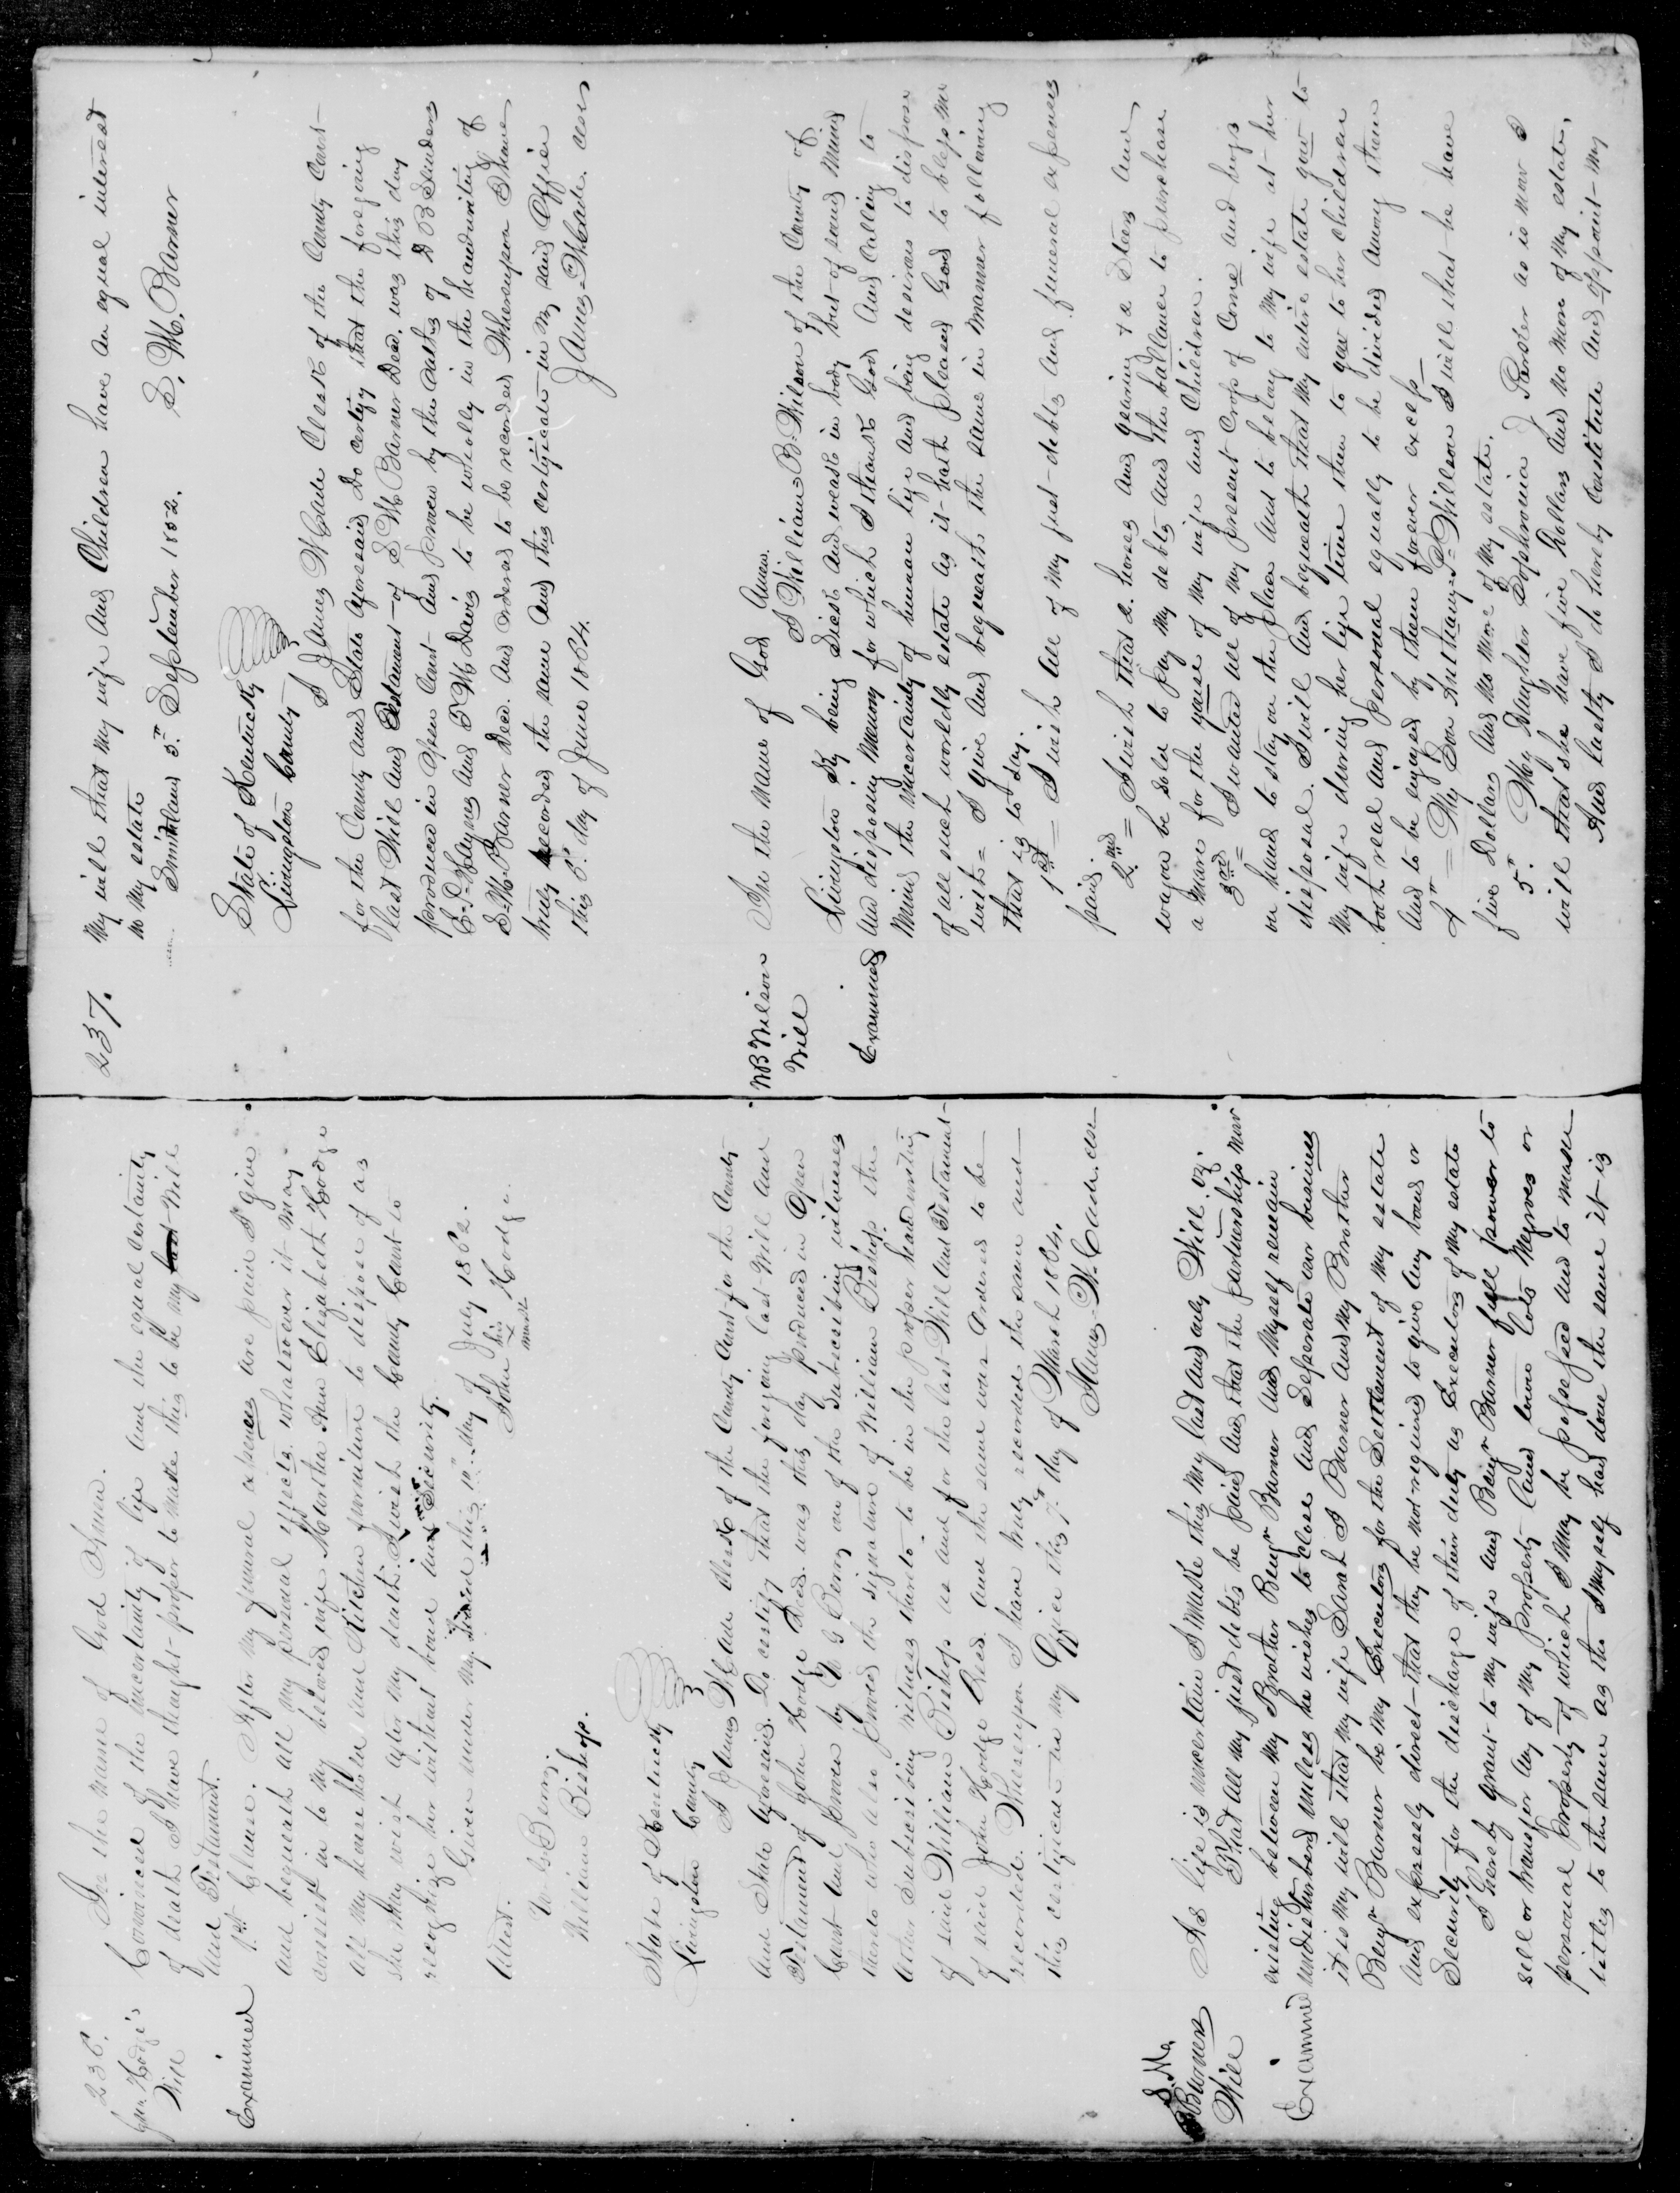 236.
Jno. Hodge's
Will
Examined
In the name of God Amen.
Convinced of the uncertainty of life and the equal certainty
of death I have thought proper to make this to be my last Will
and Testament.
1st Clause. After my funeral expences are paid I give
and bequeath all my personal effects whatsoever it may
consist in to my beloved wife Martha Ann Elizabeth Hodge
all my household and Kitchen furniture to dispose of as
she may wish after my death. I wish the County Court to
recognize her without bond and Security.
Given under my hand this 10th day of July 1862.
his
John x Hodge.
mark
Attest.
W G Berry
William Bishop.
State of Kentucky
Livingston County
I James W Cade Clerk of the County Court for the County
and State aforesaid. Do certify that the foregoing last Will and
Testament of John Hodge Decd. was this day produced in Open
Court and proven by W G Berry one of the Subscribing witnesses
thereto who also proved the signature of William Bishop the
other Subscribing witness thereto to be in the proper handwriting
of said William Bishop as and for the last Will and Testament
of said John Hodge Decd. and the same was Ordered to be
recorded. Whereupon I have truly recorded the same and
this certificate in my Office this 7th day of March 1864.
James W. Cade. CLK
S. M.
Barner
Will
Examined
As life is uncertain I make this my last and only Will. viz.
That all my just debts be paid and that the partnership now
existing between my Brother Benjr Barner and Myself remain
undisturbed unless he wishes to close and Seperate our business
it is my will that my wife Sarah I Barner and my Brother
Benjr Barner be my Executors for the Settlement of my estate
and expressly direct that they be not required to give any bond or
Security for the discharge of their duty as Executors of my estate
I hereby grant to my wife and Benjr Barner full power to
sell or transfer any of my property Land town Lots Negroes or
personal Property of which I may be possessed and to make
titles to the same as tho I myself had done the same it is
237.
my will that my wife and Children have an equal interest
in my estate
Smithland 5th September 1852. S. M. Barner
State of Kentucky
Livingston County
I James W Cade Clerk of the County Court
for the County and State aforesaid Do certify that the foregoing
last Will and Testament of S M Barner Decd. was this day
produced in Open Court and proven by the oaths of D B Sanders
C. D. Haynes and T M Davis to be wholly in the handwriting of
S. M. Barner Decd. and ordered to be recorded Whereupon I have
truly recorded the same and this certificate in my said Office
this 6th day of June 1864.
James W Cade. CLK
W B Wilson
Will
Examined
In the name of God Amen.
I William B. Wilson of the County of
Livingston Ky being Sick and weak in body but of sound Mind
and disposing Memory for which I thank God and Calling to
Mind the uncertainty of human life and being desirous to dispose
of all such worldly estate as it hath pleased God to bless me
with= I give and bequeath the same in manner following
that is to say.
1st = I wish all of my just debts and funeral expenses
paid
2nd = I wish that 2 horses and yearing & a Steers and
wagon be sold to pay my debts and the ballance to purchase
a Mare for the yuse of my wife and Children.
3rd = I wanted all of my present crop of Corne and hogs
on hand to stay on the place and to belong to my wife at her
disposal. I will and bequeath that my entire estate gow to
my wife during her life time then to gow to her children
both real and personal equally to be divided among them
and to be enjoyed by them forever except
4th = My Son Anthony P. Willson I will that he have
five Dollars and no more of my estate.
5th My daughter Sophronia J Parker as is now I
will that she have five Dollars and no more of my estate.
And lastly I do hereby Constitute and appoint my